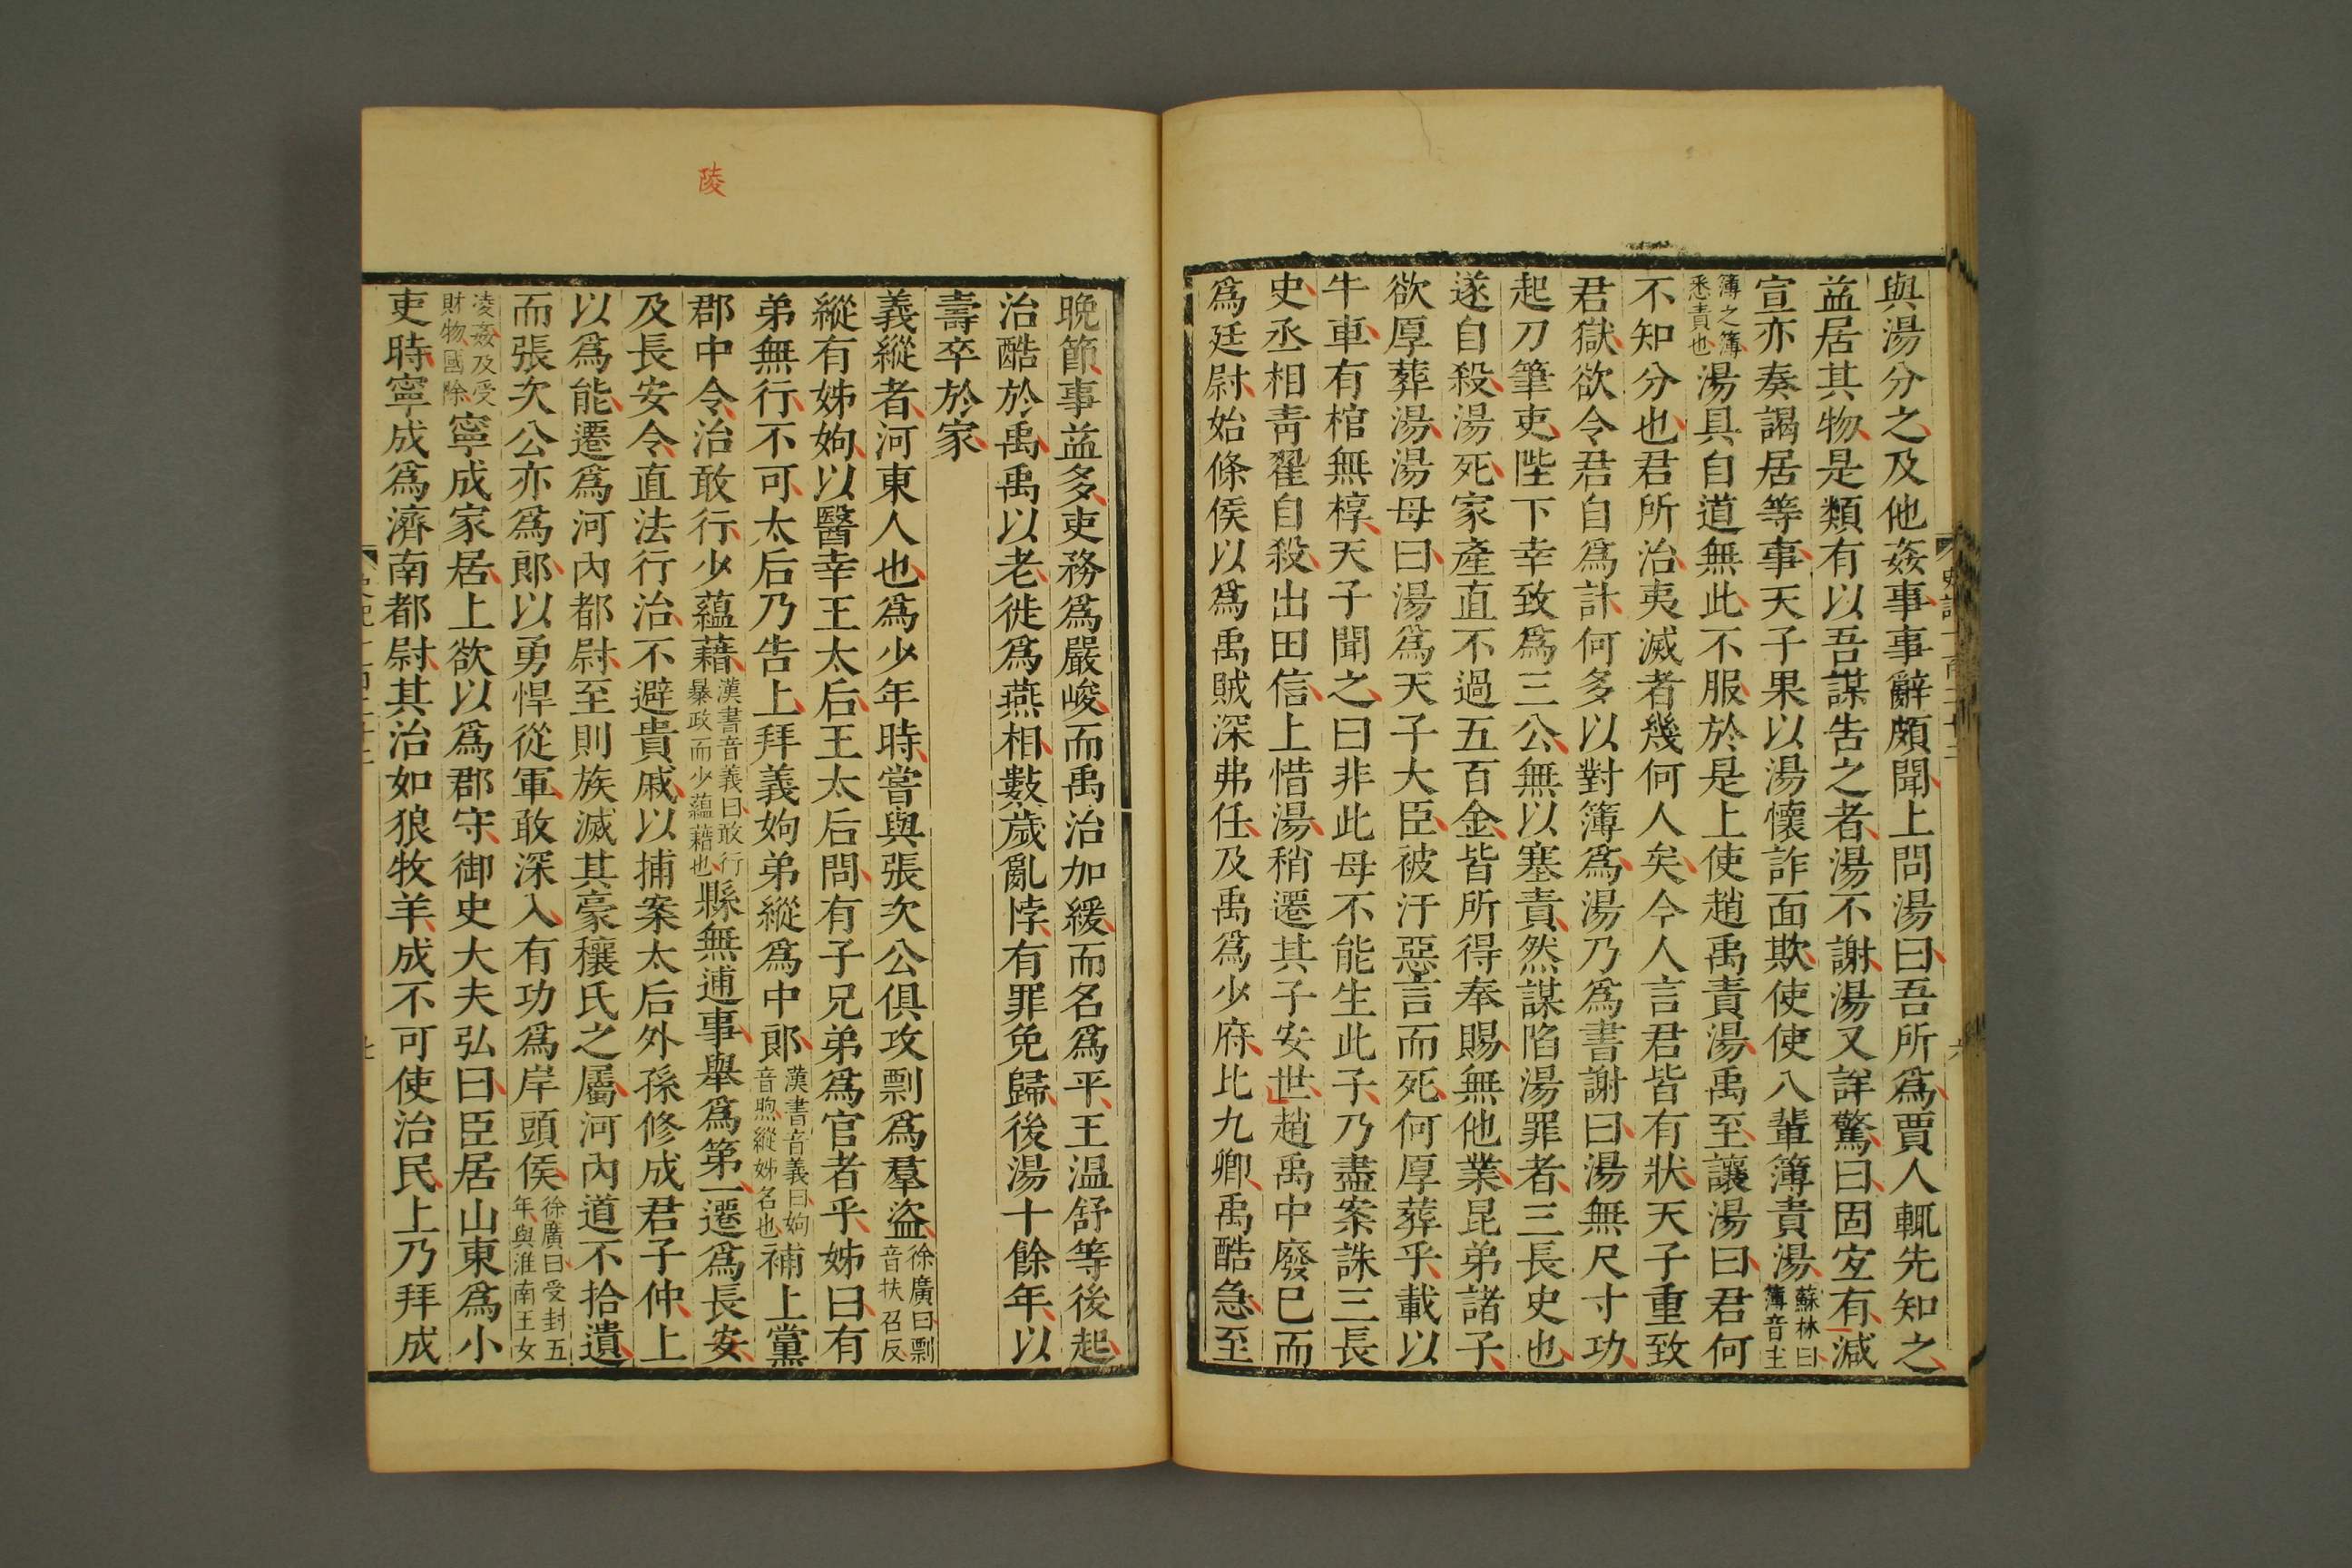 與湯分之及他姦事事辭頗聞上問湯曰吾所爲賈人輒先知之
益居其物是類有以吾謀告之者湯不謝湯又詳驚曰固宜有減
宣亦奏謁居等事天子果以湯懷詐面欺使使八輩簿責湯蘇林曰簿音主
簿之簿悉責也湯具自道無此不服於是上使趙禹責湯禹至讓湯曰君何
不知分也君所治夷滅者幾何人矣今人言君皆有狀天子重致
君獄欲令君自爲計何多以對簿爲湯乃爲書謝曰湯無尺寸功
起刀筆吏陛下幸致爲三公無以塞責然謀陷湯罪者三長史也
遂自殺湯死家產直不過五百金皆所得奉賜無他業昆弟諸子
欲厚葬湯湯母曰湯爲天子大臣被汙惡言而死何厚葬乎載以
牛車有棺無椁天子聞之曰非此母不能生此子乃盡案誅三長
史丞相靑翟自殺出田信上惜湯稍遷其子安世趙禹中廢已而
爲廷尉始條侯以爲禹賊深弗任及禹爲少府比九卿禹酷急至
陵
晚節事益多吏務爲嚴峻而禹治加緩而名爲平王温舒等後起
治酷於禹禹以老徙爲燕相數歲亂悖有罪免歸後湯十餘年以
壽卒於家
義縱者河東人也爲少年時嘗與張次公俱攻剽爲羣盜徐廣曰剽音扶召反
縱有姊姁以醫幸王太后王太后問有子兄弟爲官者乎姊曰有
弟無行不可太后乃告上拜義姁弟縱爲中郎漢書音義曰姁音煦縱姊名也補上黨
郡中令治敢行少蘊藉漢書音義曰敢行暴政而少蘊藉也縣無逋事舉爲第一遷爲長安
及長安令直法行治不避貴戚以捕案太后外孫修成君子仲上
以爲能遷爲河內都尉至則族滅其豪穰氏之屬河內道不拾遺
而張次公亦爲郎以勇悍從軍敢深入有功爲岸頭侯徐廣曰受封五年與淮南王女
凌姦及受財物國除寧成家居上欲以爲郡守御史大夫弘曰臣居山東爲小
吏時寧成爲濟南都尉其治如狼牧羊成不可使治民上乃拜成